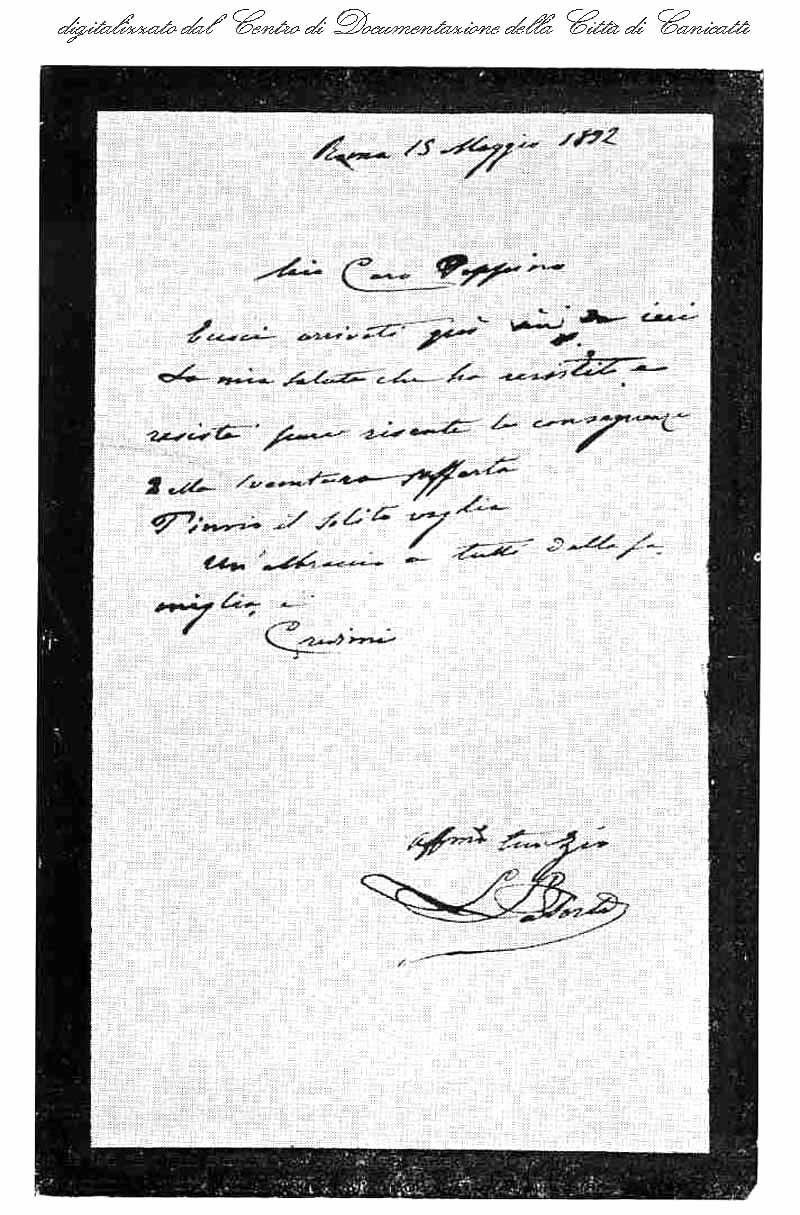 digitalizzato dal Centro di Documentazione della Città di Canicattì
Roma 15 Maggio 1892
Mio Caro Peppino
arrivato quì da ieri
La mia salute che ha resistito e
resiste risente le conseguenze
della sventura sofferta
T'invio il solito vaglia
Un abbraccio a tutti della fa
miglia, e
Credimi
affmo tuo Zio